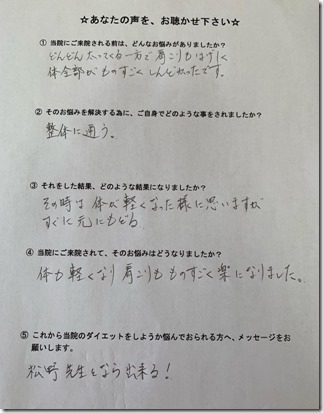 ☆あなたの声を、お聴かせ下さい☆
① 当院にご来院される前は、どんなお悩みがありましたか？
どんどん太ってくる一方で肩こりもはげしく
体全部がものすごくしんどかったです。
② そのお悩みを解決する為に、ご自身でどのような事をされましたか？
整体に通う。
③ それをした結果、どのような結果になりましたか？
その時は体が軽くなった様に思いますが
すぐに元にもどる。
④ 当院にご来院されて、そのお悩みはどうなりましたか？
体も軽くなり肩こりもものすごく楽になりました。
⑤ これから当院のダイエットをしようか悩んでおられる方へ、メッセージをお
願いします。
松野先生となら出来る！